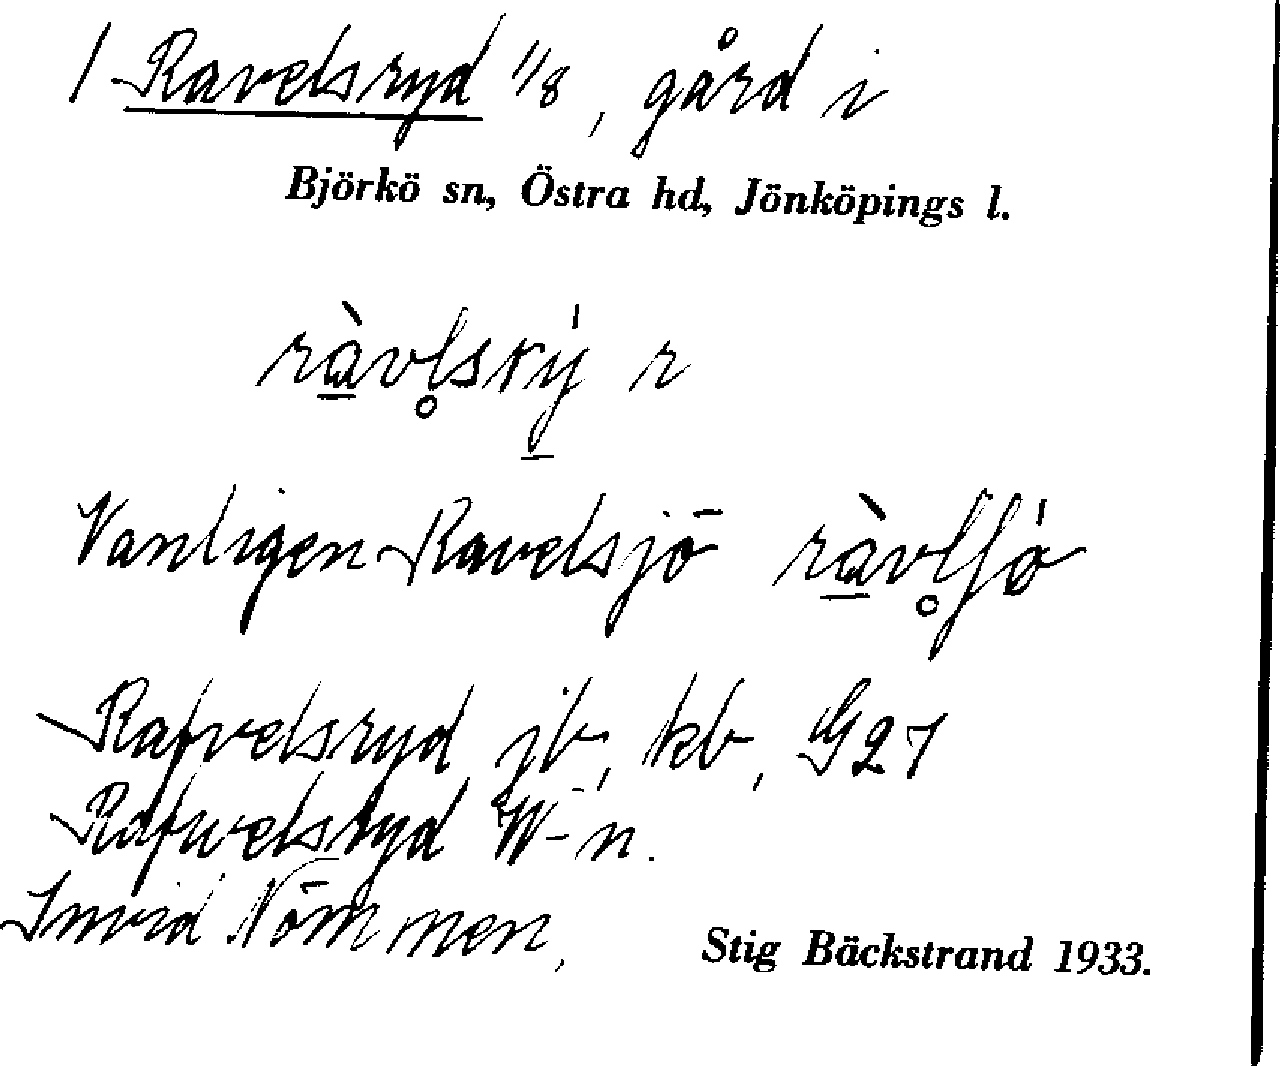 / Ravelsryd 1/8, gård i
Björkö sn, Östra hd, Jönköpings l.
ràvl̥srý r
Vanligen Ravelsjö ràvl̥ʃö́
Rafvelsryd jb, kb, G27
Rafwelsryd W-n.
Invid Nömmen,
Stig Bäckstrand 1933.